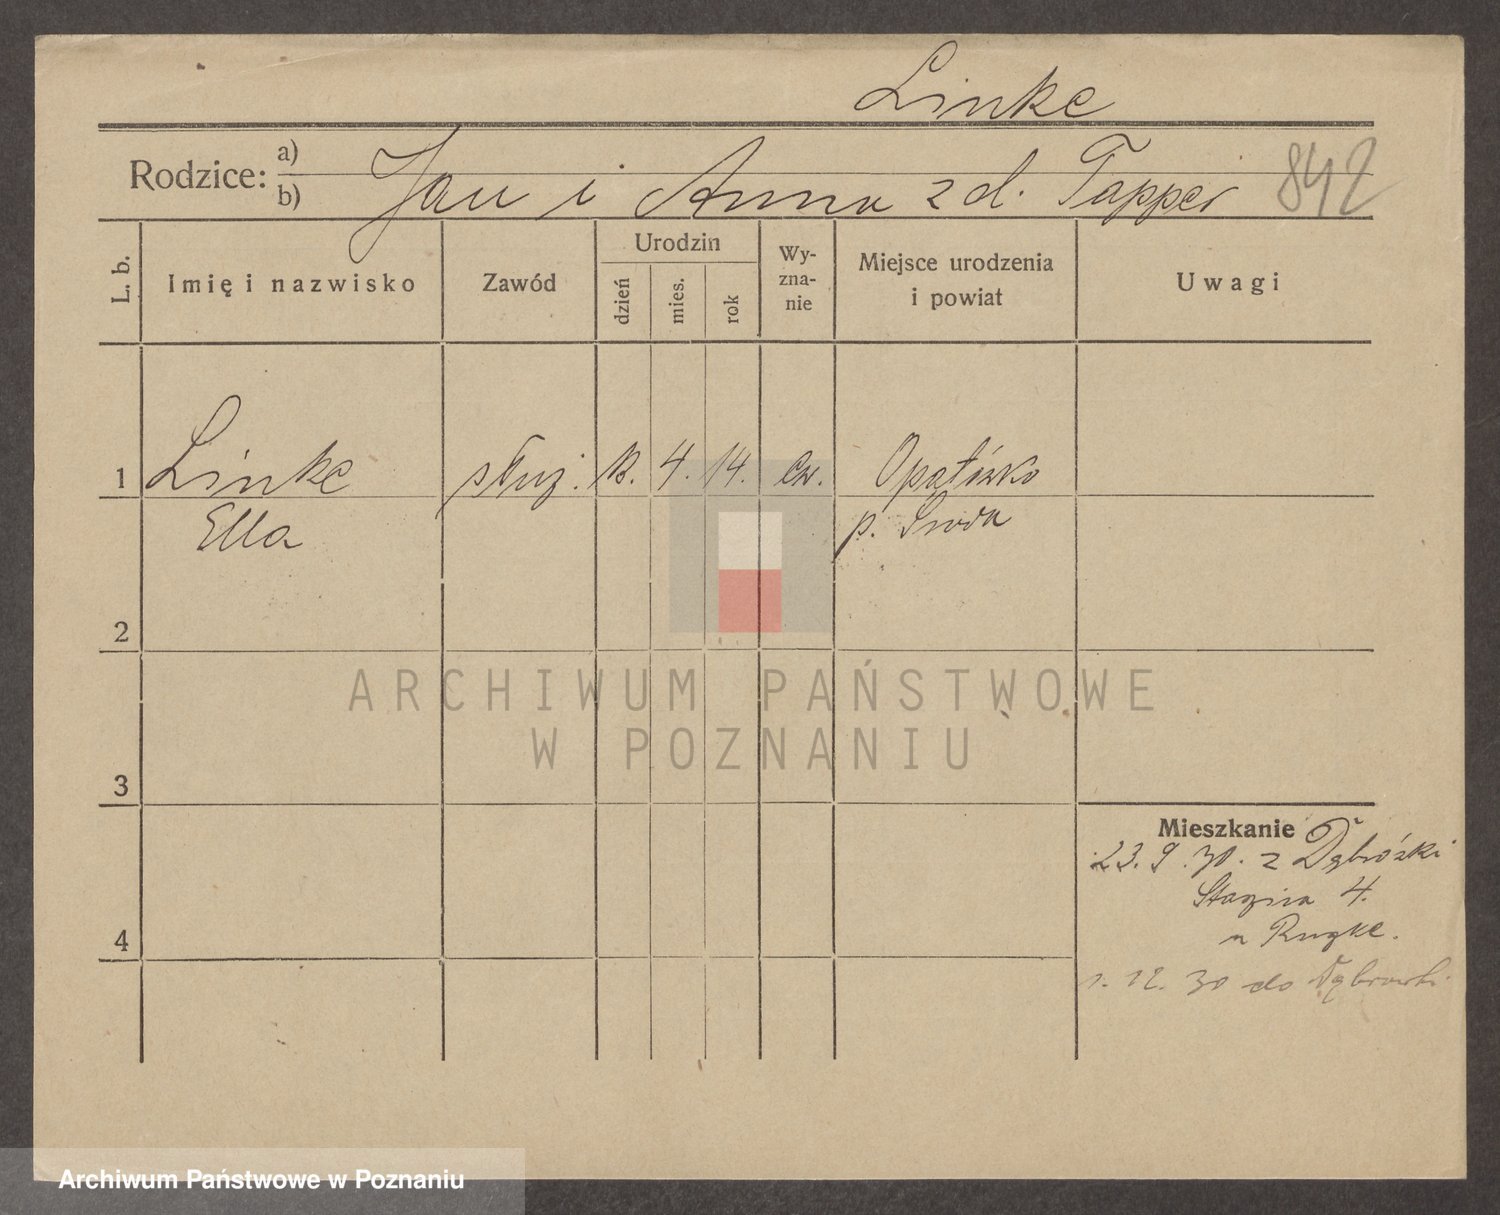 Linke
Rodzice: a) b) Jan i Anna z d. Tapper 842
L. b. Imię i nazwisko Zawód Urodzin dzień mies. rok Wyznanie Miejsce urodzenia i powiat Uwagi
1 Linke służ. 4. 14. ew. Opatówko
Ella p. Środa
2
3
Mieszkanie
23. 9. 30. z
4.
4
1. 12. 30 do
ARCHIWUM PAŃSTWOWE
W POZNANIU
Archiwum Państwowe w Poznaniu